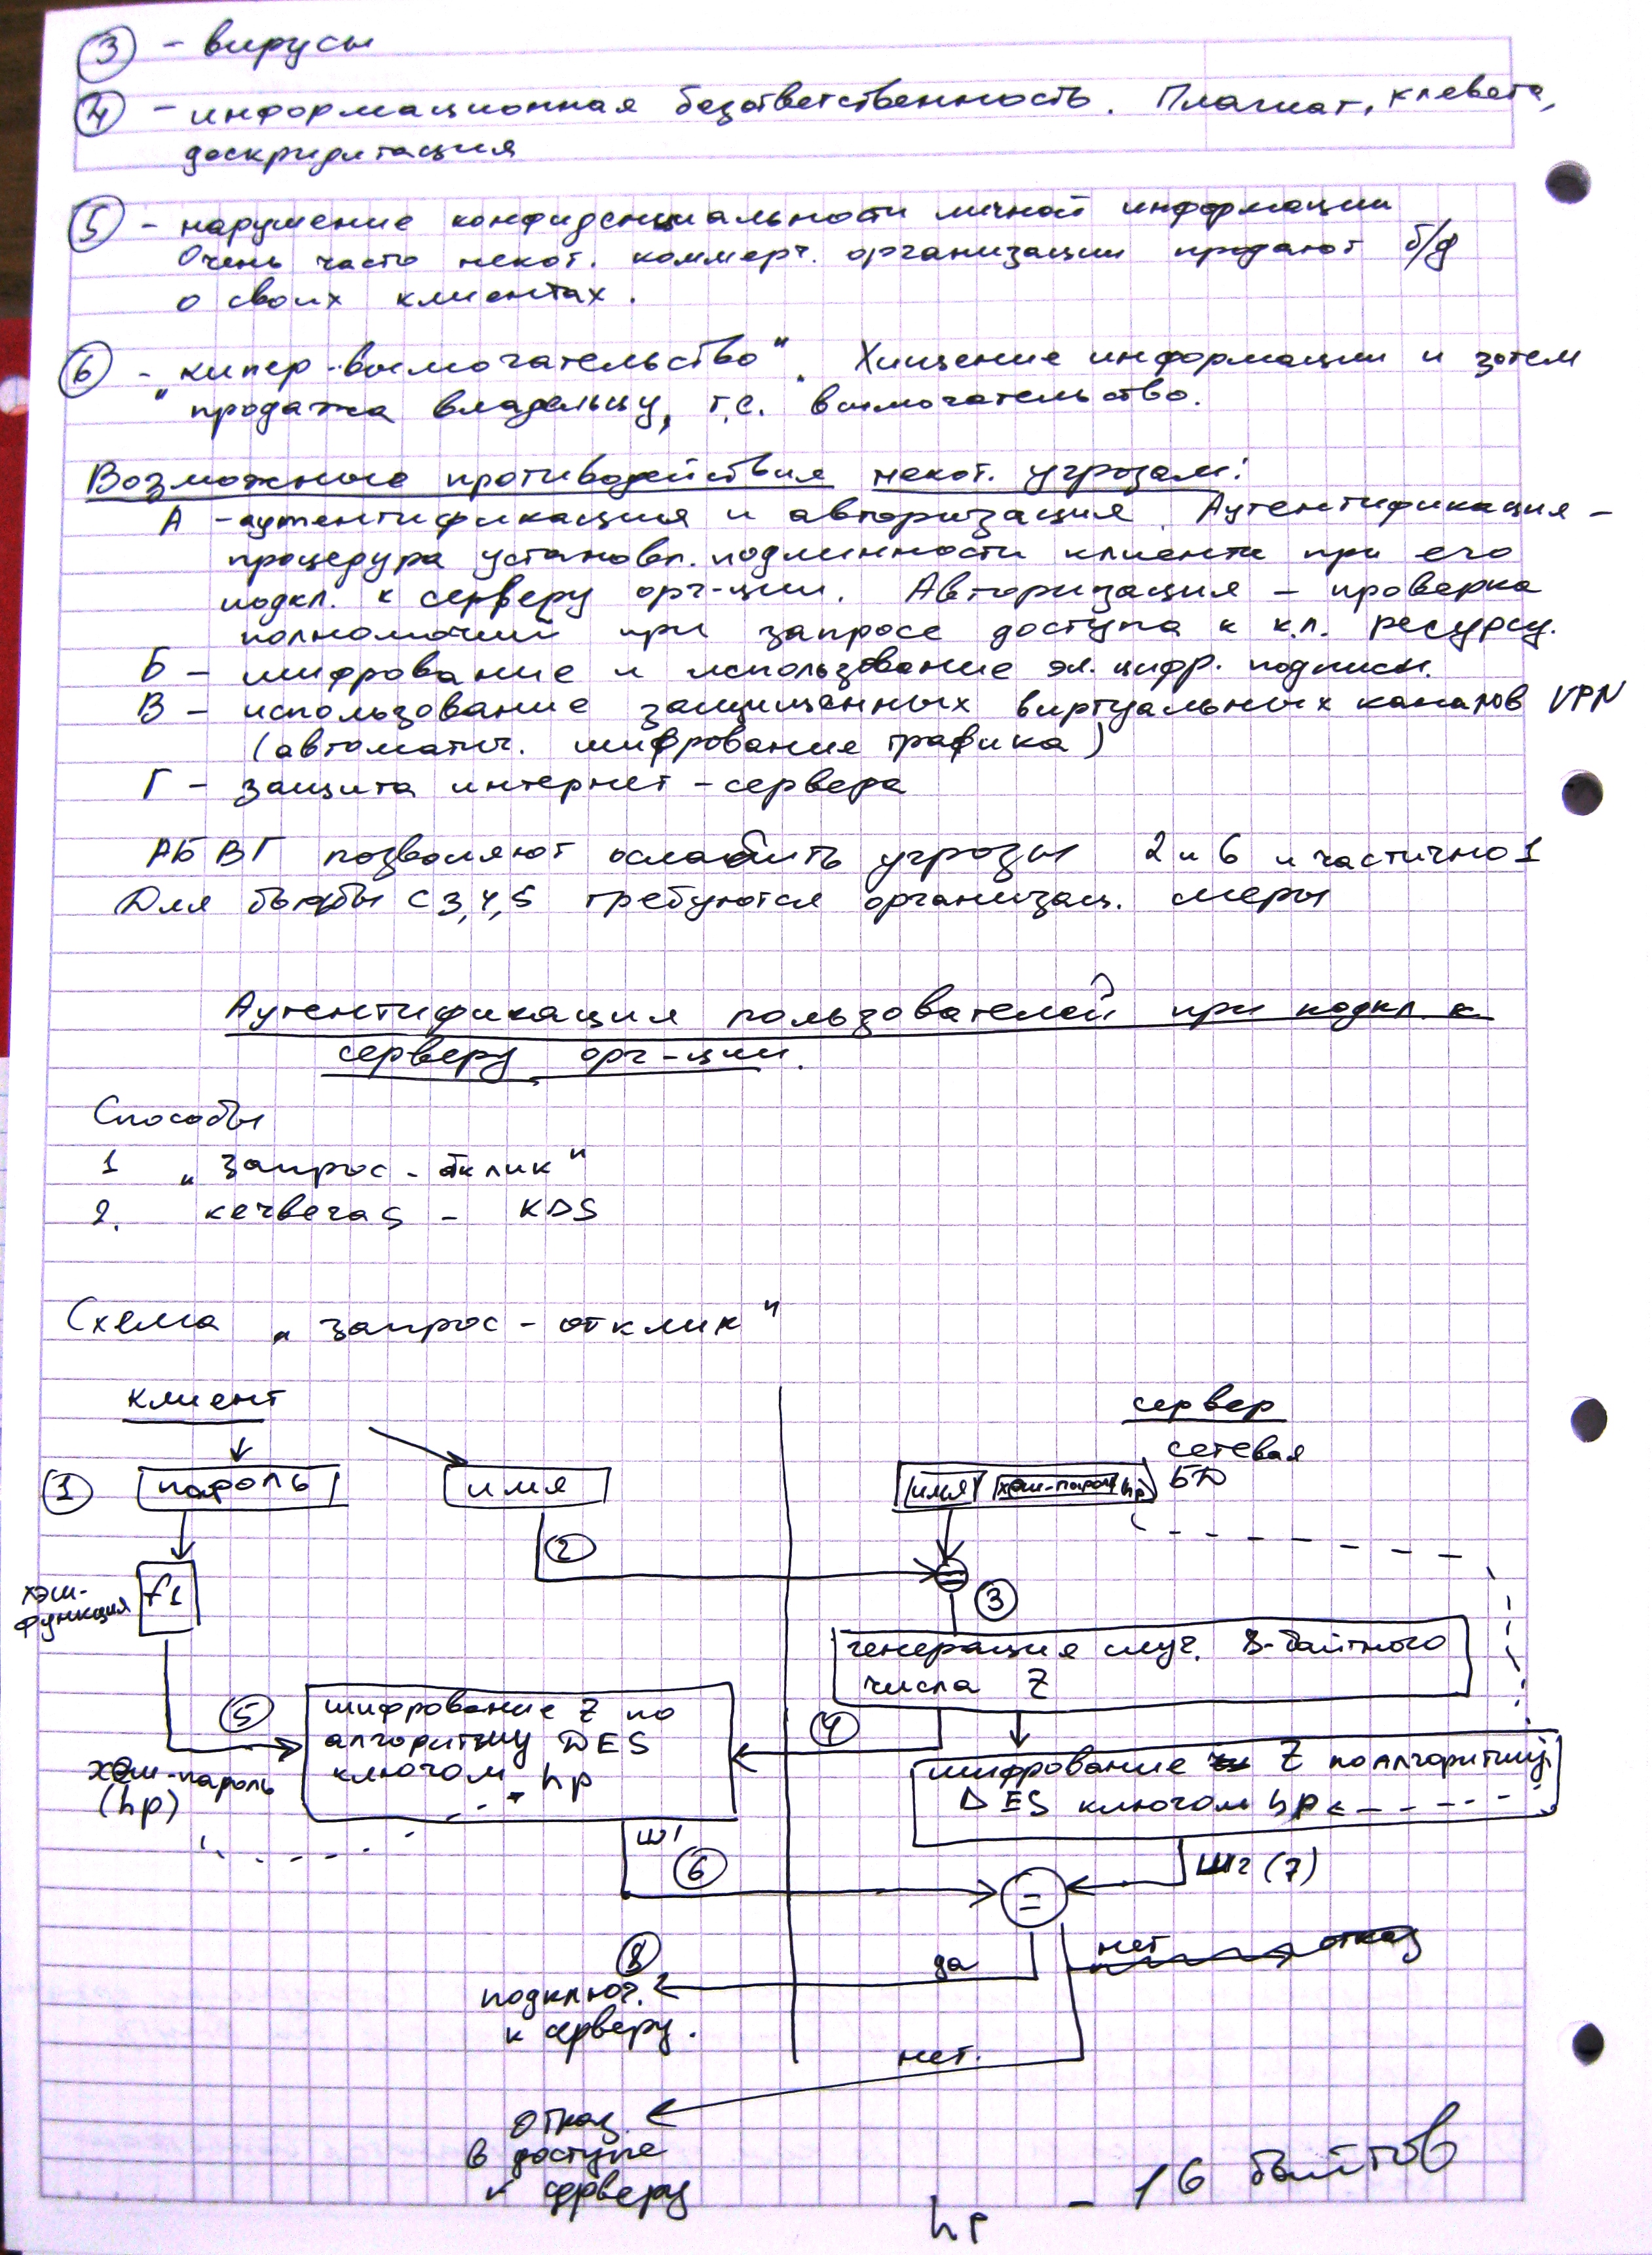 3 - вирусы
4 - информационная безответственность. Плагиат, клевета,
доскридитация
5 - нарушение конфиденциальности личной информации
Очень часто некот. коммерч. организации продают б/д
о своих клиентах.
6 - „кипер-вымогательство“. Хищение информации и затем
продажа владельцу, т.е. вымогательство.
Возможные противодействия некот. угрозам:
А - аутентификация и авторизация. Аутентификация -
процедура установл. подлинности клиента при его
подкл. к серверу орг-ции. Авторизация - проверка
полномочий при запросе доступа к к.л. ресурсу.
Б - шифрование и использование эл. цифр. подписи.
В - использование защищенных виртуальных каналов VPN
(автоматич. шифрование трафика)
Г - защита интернет-сервера
АБВГ позволяют ослабить угрозы 2 и 6 и частично 1
Для борьбы с 3,4,5 требуются организац. меры
Аутентификация пользователей при подкл. к
серверу орг-ции.
Способы
1 „запрос-отклик“
2. kerberas - KDS
Схема „запрос-отклик“
клиент
сервер
сетевая
БД
1 пароль
имя
имя хэш-пароль hp
2
хэш-
функция
f1
3
генерация случ. 8-байтного
числа Z
5
шифрование Z по
алгоритму DES
ключом hp
4
шифрование Z по алгоритму
DES ключом hp
хэш-пароль
(hp)
ш1
6
ш2 (7)
=
8
да
нет отказ
подключ.
к серверу.
нет.
отказ
в доступе
к серверу
hp - 16 байтов